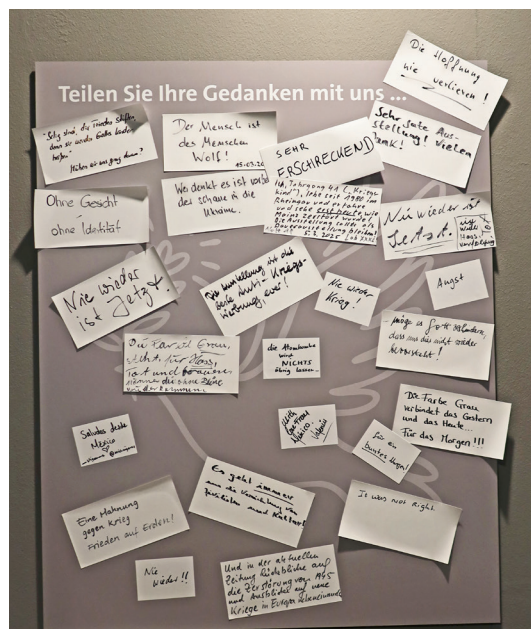 Teilen Sie Ihre Gedanken mit uns ...
Die Hoffnung
nie verlieren!
"Selig sind, die Frieden stiften,
denn sie werden Gottes Kinder
heißen"
Der Mensch ist
des Menschen
Wolf!
15.03.20
SEHR
ERSCHRECKEND
Sehr gute Aus-
stellung! Vielen
Dank!
Ohne Gesicht
- ohne Identität
Wer denkt es ist vorbei
der schaue in die
Ukraine.
Ich, Jahrgang 41 ("Kriegs-
kind"), lebe seit 1980 im
Rheingau und erfahre
und sehe erst heute, wie
Mainz zerstört wurde!
Die Ausstellung sollte als
Dauerausstellung bleiben!
5.3.2025
Nie wieder ist
Jetzt.
Nie wieder
ist Jetzt.
Die Ausstellung ist die
beste Anti-Kriegs-
Werbung, ever!
Nie wieder
Krieg!
Angst
- möge es Gott verhindern,
dass uns das nicht wieder
bevorsteht!
Die Farbe Grau,
steht für Hass,
Tot und Grauen,
die Atombombe
wird
NICHTS
übrig lassen.
Die Farbe Grau
verbindet das Gestern
und das Heute...
Für das Morgen!!!
Saludos desde
México
With
love from
Mexico.
Valeria
für ein
buntes Morgen!
Es geht immer
um die Vernichtung von
Zivilisten und Kultur!
It was not Right.
Eine Mahnung
gegen Krieg
Frieden auf Erden!
Nie
wieder!!
Und in der aktuellen
Zeitung Rückblicke auf
die Zerstörung von 1945
und Ausblicke auf neue
Kriege in Europa nebeneinander